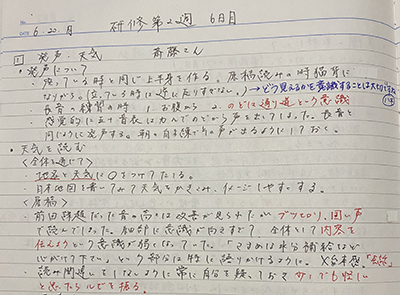 6.20.月 研修第22週 6日目
1 発声・天気 斉藤さん
・発声について
- 座っている時と同じ上半身を作る。原稿読みの時猫背に
なりがち。(立っている時には逆に反りすぎない。)→どう見えるかを意識することは大切ですね
- 長音の練習の時 1.お腹から 2.のどは通り道という意識
- 感覚的に出す音は力んでのどから声を出してしまった。長音と
同じように発声する。朝の自主練でこの声が出るようにしておく。
・天気を読む
<全体を通じて>
- 地名と天気に〇をつけてみる。
- 日本地図を書いてみて天気をかきこみ、イメージしやすくする。
<原稿>
- 前回課題だった音の高さは改善が見られたが ブツ切り、固い声
で読んでしまった。細部に意識が向きすぎて、全体として内容を
伝えようという意識が弱くなっていた。「こまめな水分補給などを
心がけて下さい」という部分は特に語りかけるように。
- 読み間違いをしないように常に自分を疑っておく。少しでも怪しい
と思ったらルビを振る。